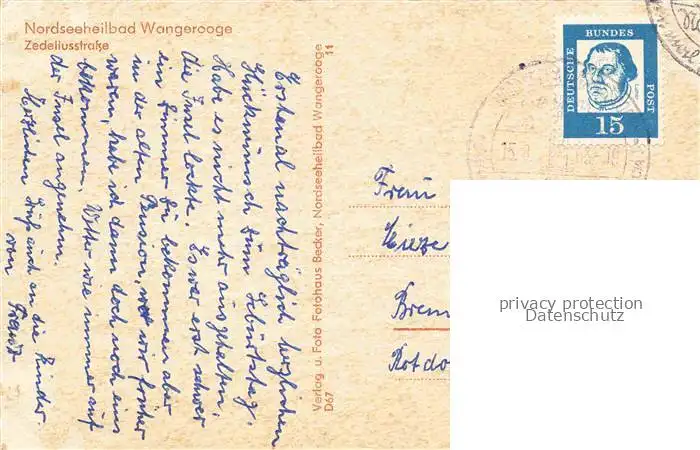 Nordseeheilbad Wangerooge
Zedeliusstraße
Erstmal nachträglich herzlichen
Glückwunsch zum Geburtstag.
Habe es nicht mehr ausgehalten,
die Insel lockte. Es war erst schwer
ein Zimmer zu bekommen aber
in der alten Pension, wo wir früher
waren, habe ich dann doch noch eines
bekommen. Wetter wie immer auf
der Insel angenehm.
Herzlichen Gruß auch an die Kinder
von
Verlag u. Foto Fotohaus Becker, Nordseeheilbad Wangerooge
11
D67
DEUTSCHE
BUNDES
POST
15
Frau
Brem
Rotdo
privacy protection
Datenschutz